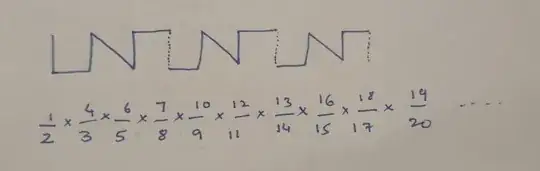 1/2 × 4/3 × 6/5 × 7/8 × 10/9 × 12/11 × 13/14 × 16/15 × 18/17 × 19/20 ----